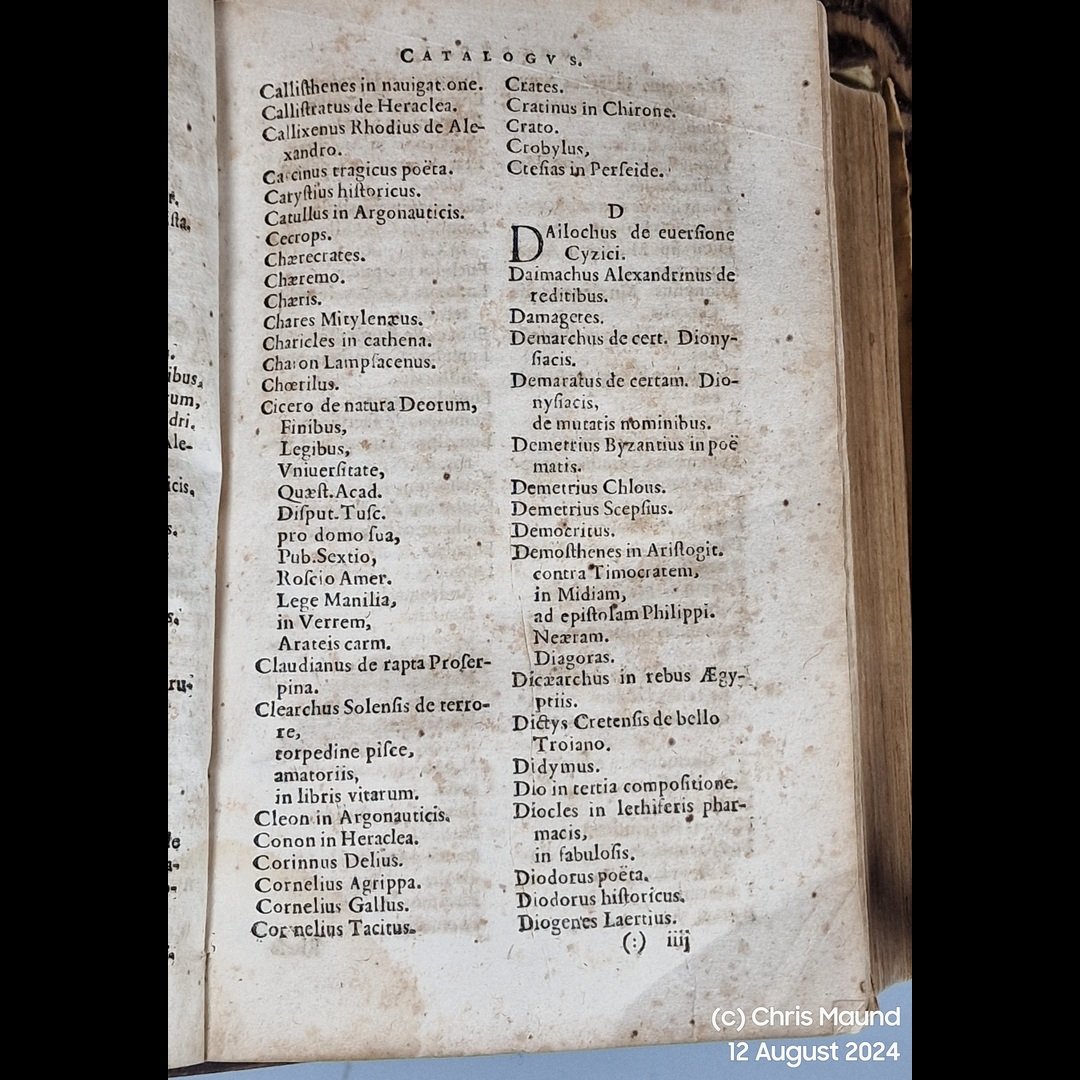 CATALOGVS.
Calliſthenes in nauigat one.
Calliſtratus de Heraclea.
Callixenus Rhodius de Ale-
xandro.
Ca cinus tragicus poëta.
Caryſtius hiſtoricus.
Catullus in Argonauticis.
Cecrops.
Chærecrates.
Chæremo.
Chæris.
Chares Mitylenæus.
Charicles in cathena.
Charon Lampſacenus.
Chœrilus.
Cicero de natura Deorum,
Finibus,
Legibus,
Vniuerſitate,
Quæſt. Acad.
Diſput. Tuſc.
pro domo ſua,
Pub. Sextio,
Roſcio Amer.
Lege Manilia,
in Verrem,
Arateis carm.
Claudianus de rapta Proſer-
pina.
Clearchus Solenſis de terro-
re,
torpedine piſce,
amatoriis,
in libris vitarum.
Cleon in Argonauticis.
Conon in Heraclea.
Corinnus Delius.
Cornelius Agrippa.
Cornelius Gallus.
Cornelius Tacitus.
Crates.
Cratinus in Chirone.
Crato.
Crobylus,
Cteſias in Perſeide.
D
DAilochus de euerſione
Cyzici.
Daimachus Alexandrinus de
reditibus.
Damagetes.
Demarchus de cert. Diony-
ſiacis.
Demaratus de certam. Dio-
nyſiacis,
de mutatis nominibus.
Demetrius Byzantius in poë
matis.
Demetrius Chlous.
Demetrius Scepſius.
Democritus.
Demoſthenes in Ariſtogit.
contra Timocratem,
in Midiam,
ad epiſtolam Philippi.
Neæram.
Diagoras.
Dicæarchus in rebus Ægy-
ptiis.
Dictys Cretenſis de bello
Troiano.
Didymus.
Dio in tertia compoſitione.
Diocles in lethiferis phar-
macis,
in fabuloſis.
Diodorus poëta.
Diodorus hiſtoricus.
Diogenes Laertius.
(:) iiij
(c) Chris Maund
12 August 2024